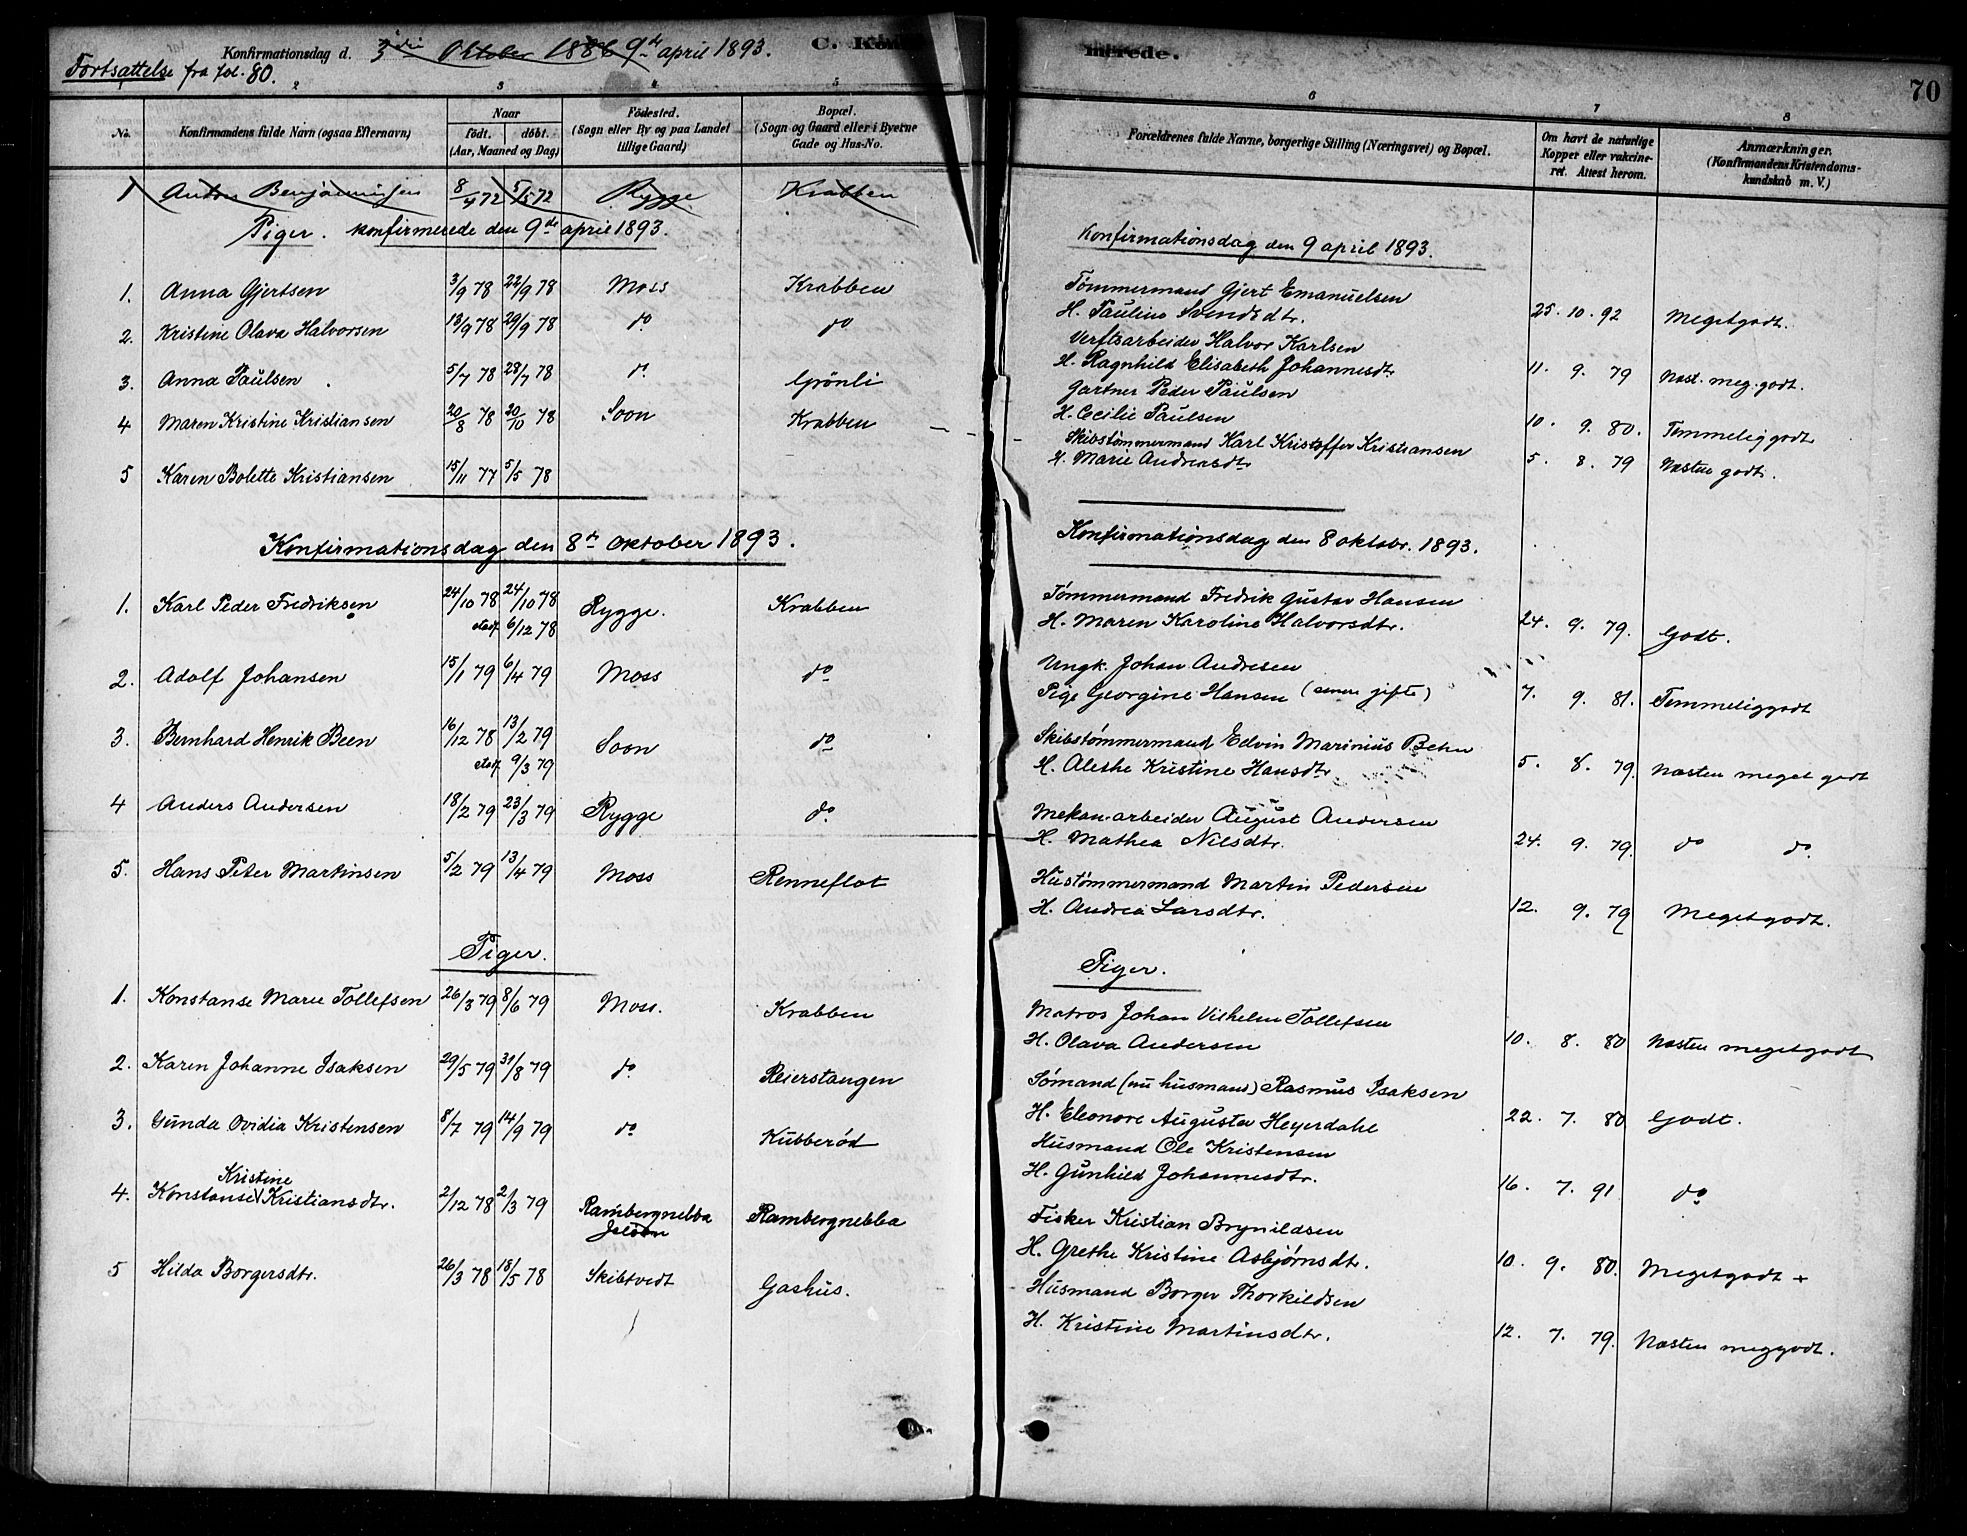 Konfirmationsdag d. 3die Oktober 1886 9de april 1893.
C. Kon
merede.
70
Fortsættelse fra fol. 80.
2 3 4 5 6 7 8
No.
Konfirmandens fulde Navn (ogsaa Efternavn)
Naar
født. døbt.
(Aar, Maaned og Dag)
Fødested.
(Sogn eller By og paa Landet
tillige Gaard)
Bopæl.
(Sogn og Gaard eller i Byerne
Gade og Hus-No.
Forældrenes fulde Navne, borgerlige Stilling (Næringsvei) og Bopæl.
Om havt de naturlige
Kopper eller vakcine-
ret. Attest herom.
Anmærkninger.
(Konfirmandens Kristendoms-
kundskab m. V.)
1 Anton Benjaminsen 8/4 72 5/5 72 Rygge Krabben
Piger. konfirmerede den 9de april 1893.
Konfirmationsdag den 9 april 1893.
1. Anna Gjertsen 3/9 78 22/9 78 Moss Krabben
Tømmermand Gjert Emanuelsen
H. Pauline Svendsdtr. 25. 10. 92 Megetgodt.
2. Kristine Olava Halvorsen 13/9 78 29/9 78 do do
Verftsarbeider Halvor Karlsen
H. Ragnhild Elisabeth Johannesdtr 11. 9. 79 Næst. meg. godt.
3. Anna Paulsen 5/7 78 28/7 78 do Grönli
Gartner Peder Paulsen
H. Cecilie Paulsen 10. 9. 80. Temmeliggodt
4 Maren Kristine Kristiansen 20/8 78 20/10 78 Soon Krabben
Skibstømmermand Karl Kristoffer Kristiansen
H. Marie Andreasdtr 5. 8. 79 Næsten godt.
5 Karen Bolette Kristiansen 15/11 77 5/5 78
Konfirmationsdag den 8de oktober 1893.
Konfirmationsdag den 8 oktobr. 1893.
1. Karl Peder Fredriksen 24/10 78 24/10 78 Rygge. Krabben
stadf. 6/12 78
Tømmermand Fredrik Gustav Hansen
H. Maren Karoline Halvorsdtr. 24. 9. 79. Godt.
2. Adolf Johansen 15/1 79 6/4 79 Moss do
Ungk. Johan Andresen
Pige Georgine Hansen (senere gifte) 7. 9. 81. Temmeliggodt
3. Bernhard Henrik Been 16/12 78 13/2 79 Soon do
stadf. 9/3 79
Skibstømmermand Edvin Marinius Behn
H. Alethe Kristine Hansdtr 5. 8. 79. Næsten meget godt
4 Anders Andersen 18/2 79 23/3 79 Rygge do.
Mekan.arbeider August Andersen
H. Mathea Nilsdtr. 24. 9. 79. do do.
5. Hans Peter Martinsen 5/2 79 13/4 79 Moss Renneflot
Hustømmermand Martin Pedersen
H. Andrea Larsdtr. 12. 9. 79 Megetgodt.
Piger.
Piger.
1. Konstanse Marie Tollefsen 26/3 79 8/6 79 Moss. Krabben
Matros Johan Vilhelm Tollefsen
H. Olava Andersen 10. 8. 80 Næsten megetgodt
2. Karen Johanne Isaksen 29/5 79 31/8 79 do Reierstangen
Sømand (nu husmand) Rasmus Isaksen
H. Eleonore Augusta Heyerdahl 22. 7. 80 Godt.
3. Gunda Ovidia Kristensen 8/7 79 14/9 79 do Kubberød
Husmand Ole Kristensen
H. Gunhild Johannesdtr. 16. 7. 91 do
Kristine
4. Konstanse Kristiansdtr. 2/12 78 2/3 79 Rambergnebba Rambergnebba
Jeløen
Fisker Kristian Brynildsen
H. Grethe Kristine Asbjørnsdtr. 10. 9. 80. Megetgodt +
5 Hilda Borgersdtr. 26/3 78 18/5 78 Skibtvedt Gashus.
Husmand Borger Thorkildsen
H. Kristine Martinsdtr. 12. 7. 79. Næsten meggodt.